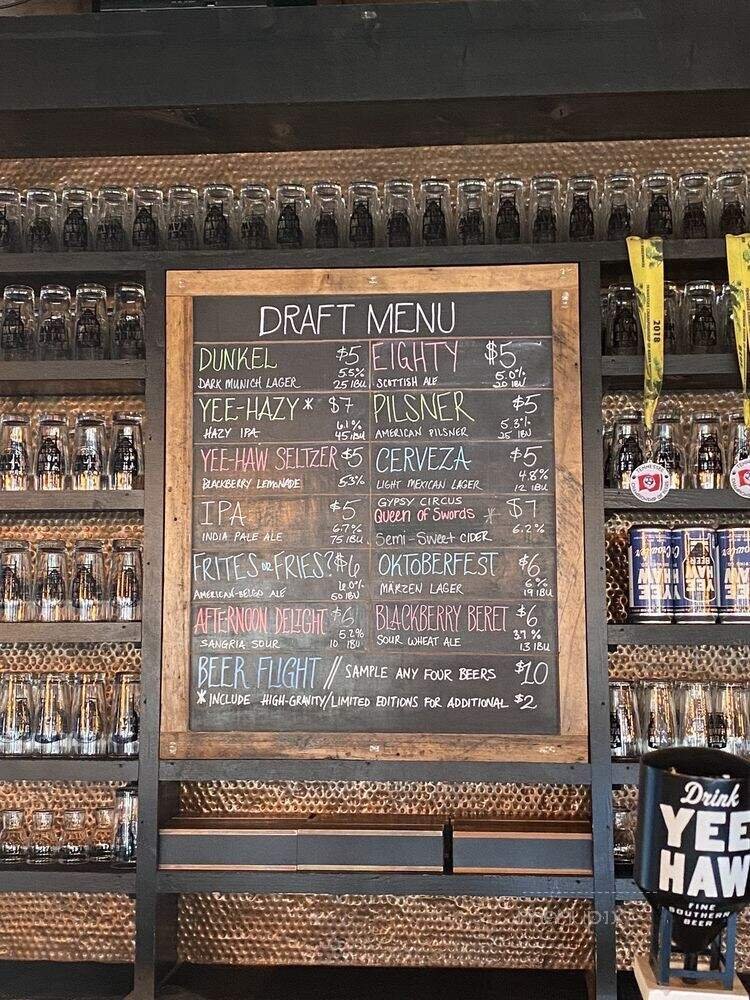 DRAFT MENU
DUNKEL $5
5.5%
DARK MUNICH LAGER 25 IBU
EIGHTY $5
5.0%
SCOTTISH ALE 20 IBU
YEE-HAZY * $7
6.1%
HAZY IPA 45 IBU
PILSNER $5
5.3%
AMERICAN PILSNER 25 IBU
YEE-HAW SELTZER $5
BLACKBERRY LEMONADE 5.3%
CERVEZA $5
4.8%
LIGHT MEXICAN LAGER 12 IBU
IPA $5
6.7%
INDIA PALE ALE 75 IBU
GYPSY CIRCUS
Queen of Swords * $7
6.2%
Semi-Sweet CIDER
FRITES OR FRIES? $6
6.0%
AMERICAN-BELGO ALE 50 IBU
OKTOBERFEST $6
6%
MÄRZEN LAGER 19 IBU
AFTERNOON DELIGHT $6
5.2%
SANGRIA SOUR 10 IBU
BLACKBERRY BERET $6
3.7%
SOUR WHEAT ALE 13 IBU
BEER FLIGHT // SAMPLE ANY FOUR BEERS $10
* INCLUDE HIGH-GRAVITY/LIMITED EDITIONS FOR ADDITIONAL $2
2018
TENNESSEE
YEE
HAW
BEER
Drink
YEE
HAW
FINE
SOUTHERN
BEER